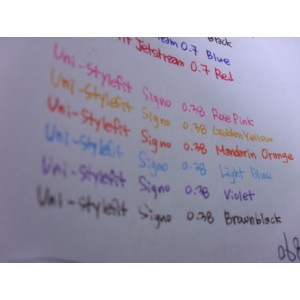 Black
eam 0.7 Blue
it Jetstream 0.7 Red
Uni-Stylefit Signo 0.38 Rose Pink
Uni-Stylefit Signo 0.38 Golden Yellow
Uni-Stylefit Signo 0.38 Mandarin Orange
Uni-Stylefit Signo 0.38 Light Blue
Uni-Stylefit Signo 0.38 Violet
Uni-Stylefit Signo 0.38 Brownblack